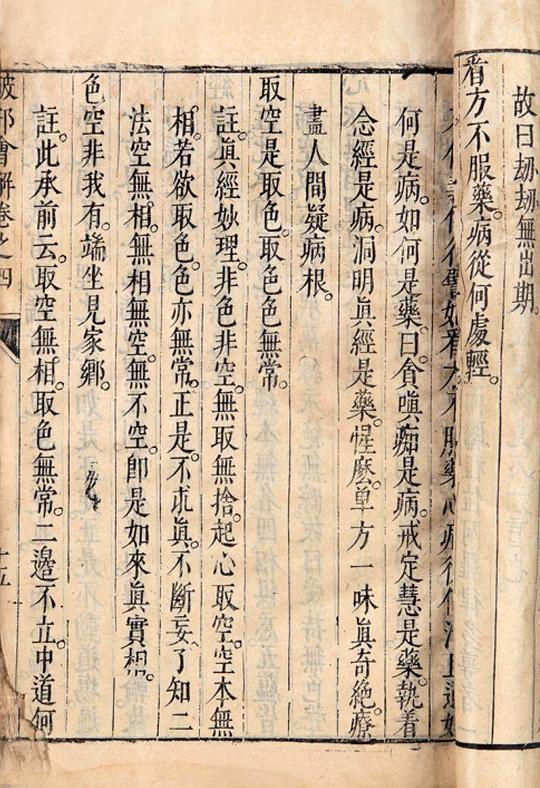 故曰刼刼無出期。
看方不服藥。病從何處輕。
何是病。如何是藥。曰貪嗔痴是病。戒定慧是藥。執着
念經是病。洞明眞經是藥。惺麽。單方一味眞奇絶。療
盡人間疑病根。
取空是取色。取色色無常。
註。眞經妙理。非色非空。無取無捨。起心取空。空本無
相。若欲取色。色亦無常。正是。不求眞。不斷妄。了知二
法空無相。無相無空無不空。卽是如來眞實相。
色空非我有。端坐見家鄉。
註。此承前云。取空無相。取色無常。二邊不立。中道何
破邪會解卷之四
十五